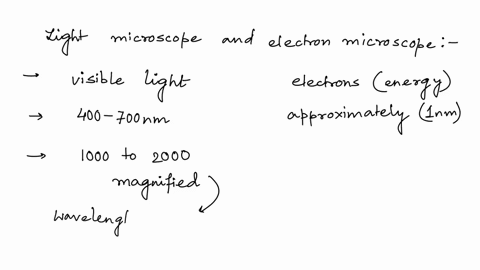 Light microscope and electron microscope:-
→ visible light electrons (energy)
→ 400-700nm approximately (1nm)
→ 1000 to 2000
magnified
wavelengl